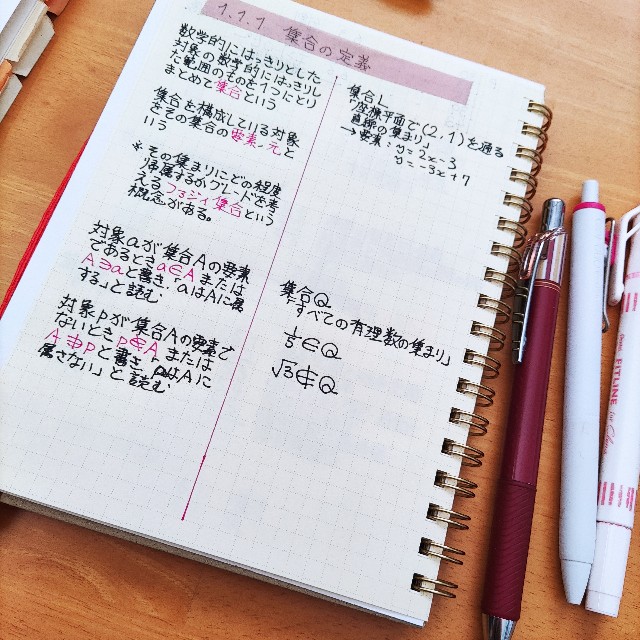 1.1.1 集合の定義
数学的にはっきりとした
対象の数学的にはっきりし
た範囲のものを1つにとり
まとめて集合という
集合を構成している対象
をその集合の要素、元と
いう
* その集まりにどの程度
帰属するかグレードを考
えるファジイ集合という
概念がある。
対象aが集合Aの要素
であるとき a∈A または
A∋a と書き、「aはAに属
する」と読む
対象pが集合Aの要素で
ないとき p∉A または
A∌p と書き、「pはAに
属さない」と読む
集合L
「座標平面で(2,1)を通る
直線の集まり」
→要素: y=2x-3
y=-3x+7
集合Q
「すべての有理数の集まり」
1/5∈Q
√3∉Q
FITLINE